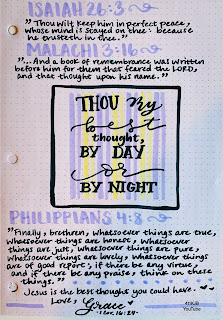 ISAIAH 26:3
"Thou wilt keep him in perfect peace,
whose mind is stayed on thee: because
he trusteth in thee."
MALACHI 3:16
"...And a book of remembrance was written
before him for them that feared the LORD,
and that thought upon his name."
THOU my
best
thought,
BY DAY
or
BY NIGHT
PHILIPPIANS 4:8
"Finally, brethren, whatsoever things are true,
whatsoever things are honest, whatsoever
things are just, whatsoever things are pure,
whatsoever things are lovely, whatsoever things
are of good report; if there be any virtue,
and if there be any praise, think on these
things."
Jesus is the best thought you could have.
Love,
Grace
1 Cor. 16:24
YouTube